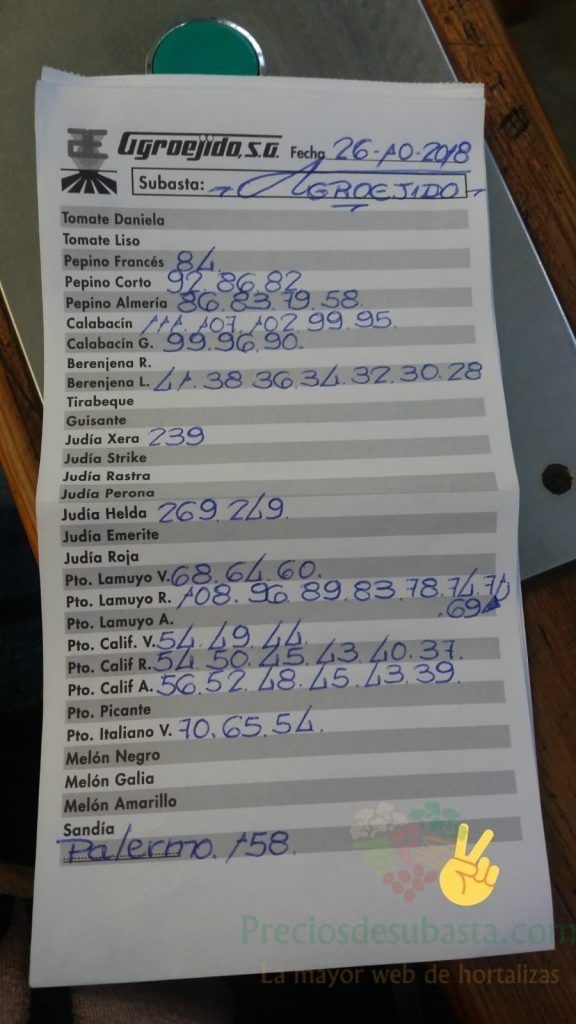 Agroejido, S.A. Fecha 26-10-2018
Subasta: AGROEJIDO
Tomate Daniela
Tomate Liso
Pepino Francés 84.
Pepino Corto 92.86.82
Pepino Almería 86.83.79.58.
Calabacín 111.107.102.99.95.
Calabacín G. 99.96.90.
Berenjena R.
Berenjena L. 41.38.36.34.32.30.28
Tirabeque
Guisante
Judía Xera 239
Judía Strike
Judía Rastra
Judía Perona
Judía Helda 269.249.
Judía Emerite
Judía Roja
Pto. Lamuyo V. 68.64.60.
Pto. Lamuyo R. 108.96.89.83.78.74.71
.69
Pto. Lamuyo A.
Pto. Calif. V. 54.49.44.
Pto. Calif R. 54.50.45.43.40.37.
Pto. Calif A. 56.52.48.45.43.39.
Pto. Picante
Pto. Italiano V. 70.65.54.
Melón Negro
Melón Galia
Melón Amarillo
Sandía
Palermo. 158.
Preciosdesubasta.com
La mayor web de hortalizas